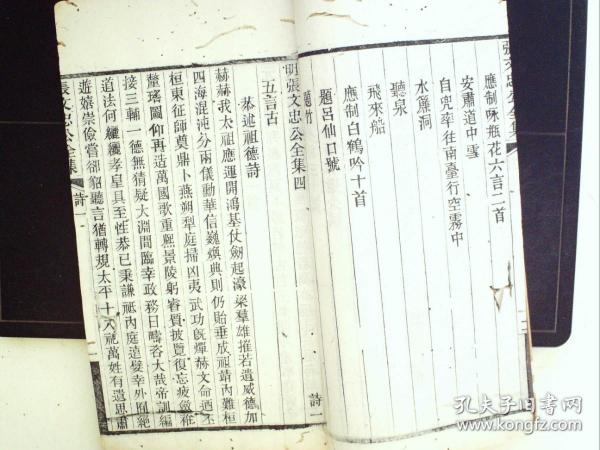 張文忠公全集
應制咏瓶花六言二首
安肅道中雪
自兜率往南臺行空霧中
水簾洞
聽泉
飛來船
應制白鶴吟十首
題呂仙口號
題竹
詩一
明張文忠公全集四
五言古
恭述祖德詩
赫赫我太祖應運開鴻基仗劍起濠梁羣雄摧若遺威德加
四海混沌分兩儀動華信巍煥典則仍貽垂成祖靖內難桓
桓東征師奠鼎卜燕朔犁庭掃凶夷武功旣燀赫文命迺丕
釐瑤圖仰再造萬國歌重熙景陵躬睿質披覽復忘疲
接三輔一德無猜疑大淵間臨幸政務日疇咨大哉帝訓編
道法何纚纚孝皇具至性恭己秉謙祗內庭造
遊嬉崇儉嘗卻貂聽言猶轉規太平十八祀萬姓有遺思肅
張文忠公全集
詩一
孔夫子旧书网
www.kongfz.com